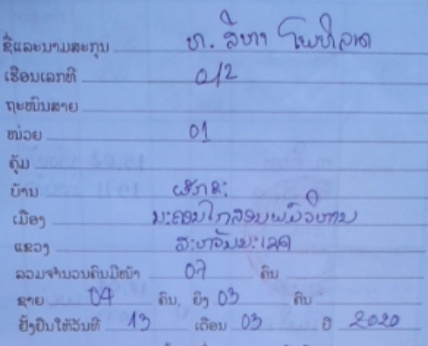 ຊື່ແລະນາມສະກຸນ ທ. ສີຫາ ໂພທິລາດ
ເຮືອນເລກທີ 012
ຖະໜົນສາຍ
ໜ່ວຍ 01
ຄຸ້ມ
ບ້ານ
ເມືອງ ນະຄອນໄກສອນພົມວິຫານ
ແຂວງ ສະຫວັນນະເຂດ
ລວມຈຳນວນຄົນມີໜ້າ 07 ຄົນ
ຊາຍ 04 ຄົນ, ຍິງ 03 ຄົນ
ຢັ້ງຢືນໃຫ້ວັນທີ 13 ເດືອນ 03 ປີ 2020